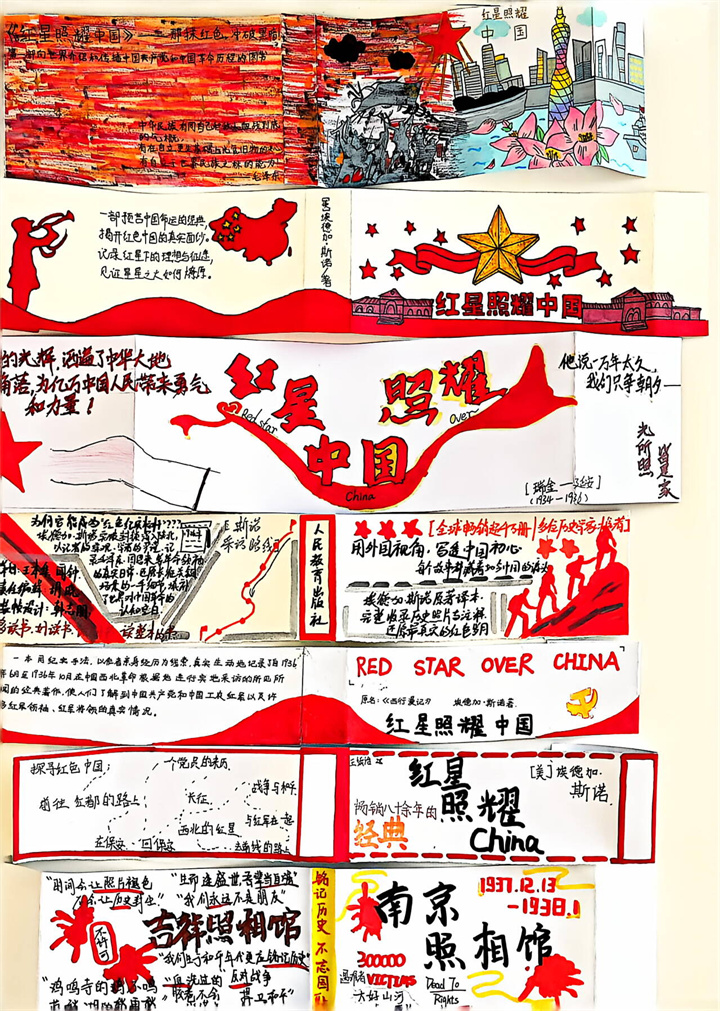 《红星照耀中国》——一那抹红色，冲破黑暗
中华民族有同自己的敌人血战到底
的气概，
有在自立更生基础上光复旧物的决心
有自立于世界民族之林的能力
——毛泽东
红星照耀
中国
一部拒苦中国命运的经典，
揭开红色中国的真实面纱。
记录红星下的理想与征途，
见证星星之火如何燎原。
埃德加·斯诺/著
红星照耀中国
的光辉，洒遍了中华大地
角落，为亿万中国人民带来勇气
和力量！
红星 照耀
Red star
Over
中国
China
他说一万年太久，
我们只争朝夕——
[瑞金——延安]
(1934—1936)
光所照
皆是家
为何它能成为红色经典????
斯诺
采访路线
人民教育出版社
[全球畅销超千万册]
用外国视角，写透中国初心
埃德加·斯诺原著译本
完整收录历史照片与注释
还原最真实的红色岁月
一本用纪实手法，以参者亲身经历为线索，真实生动地记录了自1936
年6月至1936年10月在中国西北革命根据地进行实地采访的所见所
闻的经典著作，使人们了解到中国共产党和中国工农红军以及许
多红军领袖、红军将领的真实情况。
RED STAR OVER CHINA
原名：《西行漫记》 埃德加·斯诺著
红星照耀中国
探寻红色中国：
一个党员的来历
前往红都的路上
长征
战争与和平
西北的红星
与红军在一起
在保安
回保安
去前线的路上
红星
照耀
China
畅销八十余年的
经典
[美]埃德加·
斯诺
"时间会让照片褪色
不会让历史封尘"
"旦那逢盛世，吾辈当自强"
"我们永远不是朋友"
不许可
吉祥照相馆
"我们生于和平年代更应铭记历史"
"鸡鸣寺的
反对战争
捍卫和平"
铭记历史 不忘国耻
南京
照相馆
1937.12.13
—1938.1
300000
遇难者 VICTIMS
大好山河
Dead To
Rights